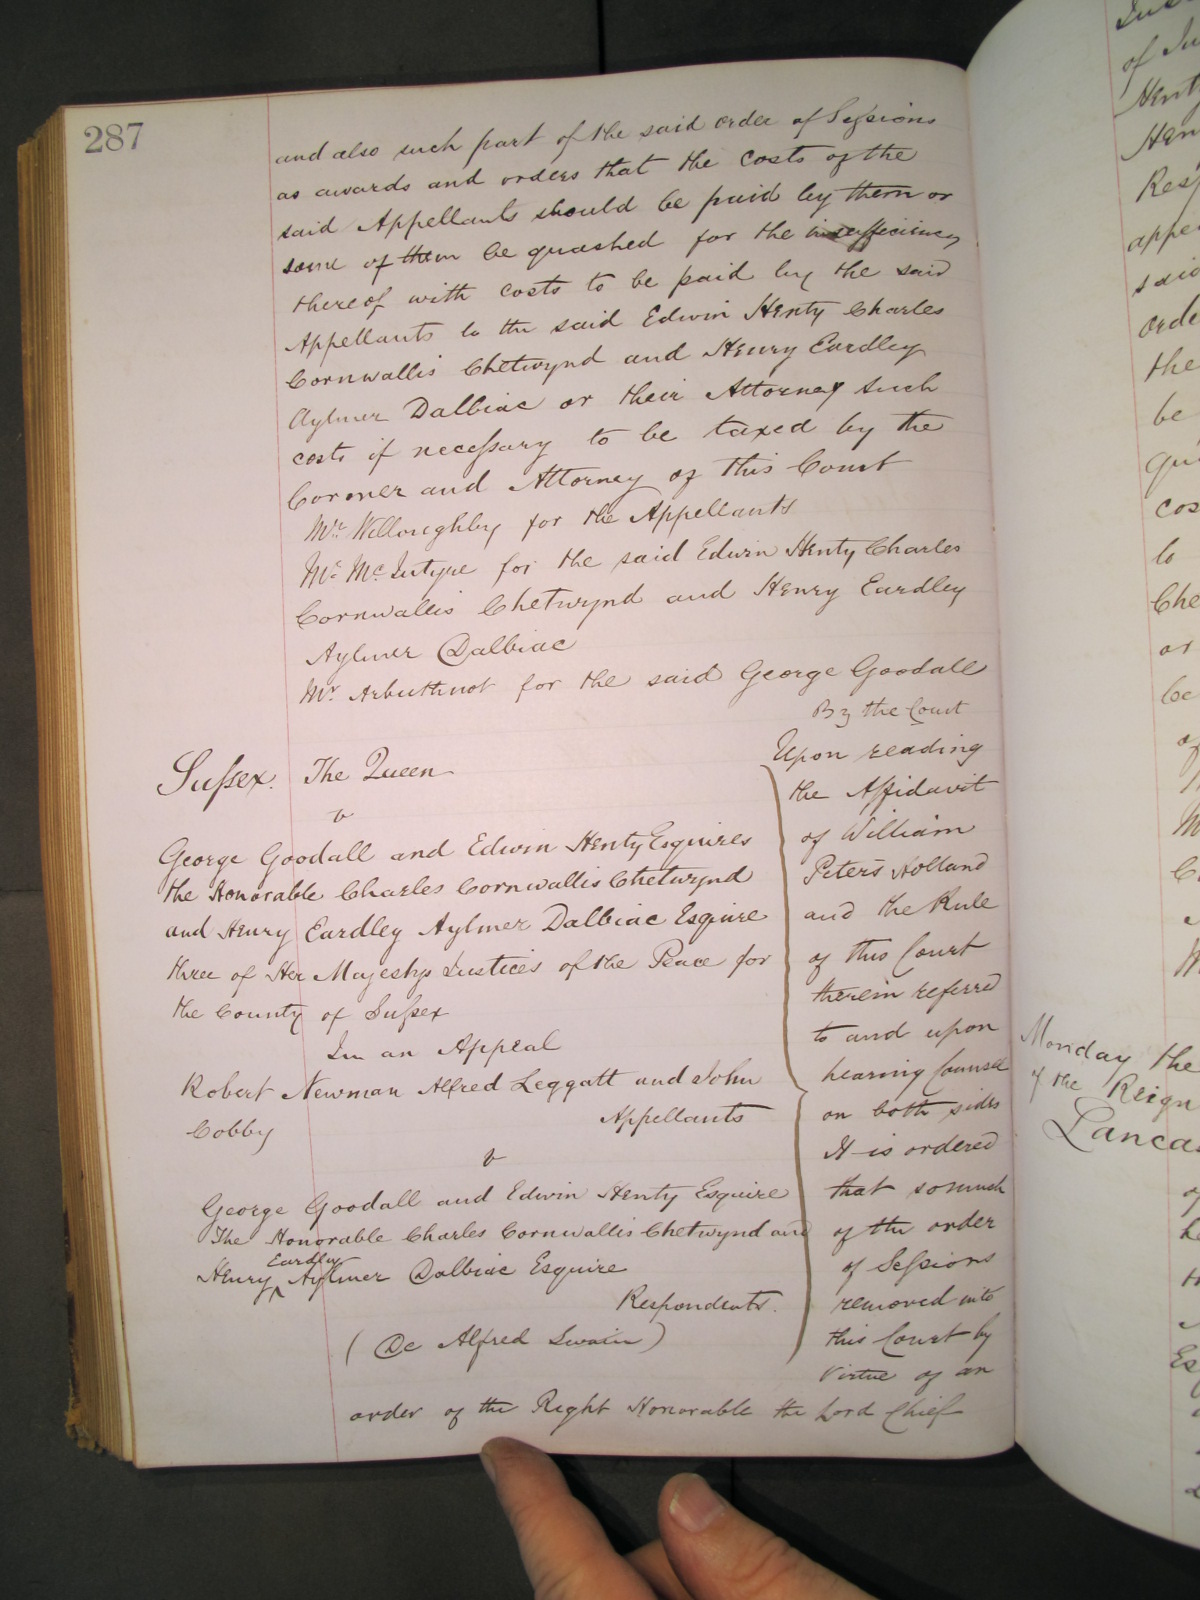 287
and also such part of the said order of Sessions
as awards and orders that the costs of the
said Appellants should be paid by them or
some of them be quashed for the insufficiency
thereof with costs to be paid by the said
Appellants to the said Edwin Henty Charles
Cornwallis Chetwynd and Henry Eardley
Aylmer Dalbiac or their Attorney such
costs if necessary to be taxed by the
Coroner and Attorney of this Court
Mr. Willoughby for the Appellants
Mr. McIntyre for the said Edwin Henty Charles
Cornwallis Chetwynd and Henry Eardley
Aylmer Dalbiac
Mr. Arbuthnot for the said George Goodall
By the Court
Sussex. The Queen
v
George Goodall and Edwin Henty Esquires
the Honorable Charles Cornwallis Chetwynd
and Henry Eardley Aylmer Dalbiac Esquire
three of Her Majestys Justices of the Peace for
the County of Sussex
In an Appeal
Robert Newman Alfred Leggatt and John
Cobby Appellants
v
George Goodall and Edwin Henty Esquire
The Honorable Charles Cornwallis Chetwynd and
Henry Eardley Aylmer Dalbiac Esquire
Respondents.
(De Alfred Swain)
Upon reading
the Affidavit
of William
Peters Holland
and the Rule
of this Court
therein referred
to and upon
hearing Counsel
on both sides
It is ordered
that so much
of the order
of Sessions
removed into
this Court by
virtue of an
order of the Right Honorable the Lord Chief
of
Henty
Resp
appe
said
orde
the
be
cos
to
Che
or
be
of
Monday the
of the Reign
Lanca